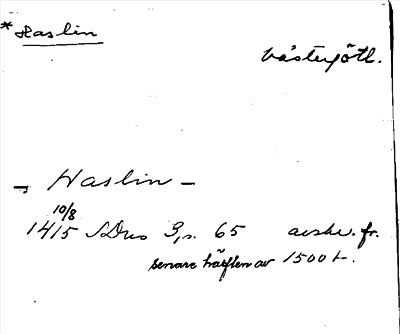 *Haslin
Västergötl.
- Haslin -
10/8
1415 SDns 3, s. 65 avskr. fr.
senare hälften av 1500 t.